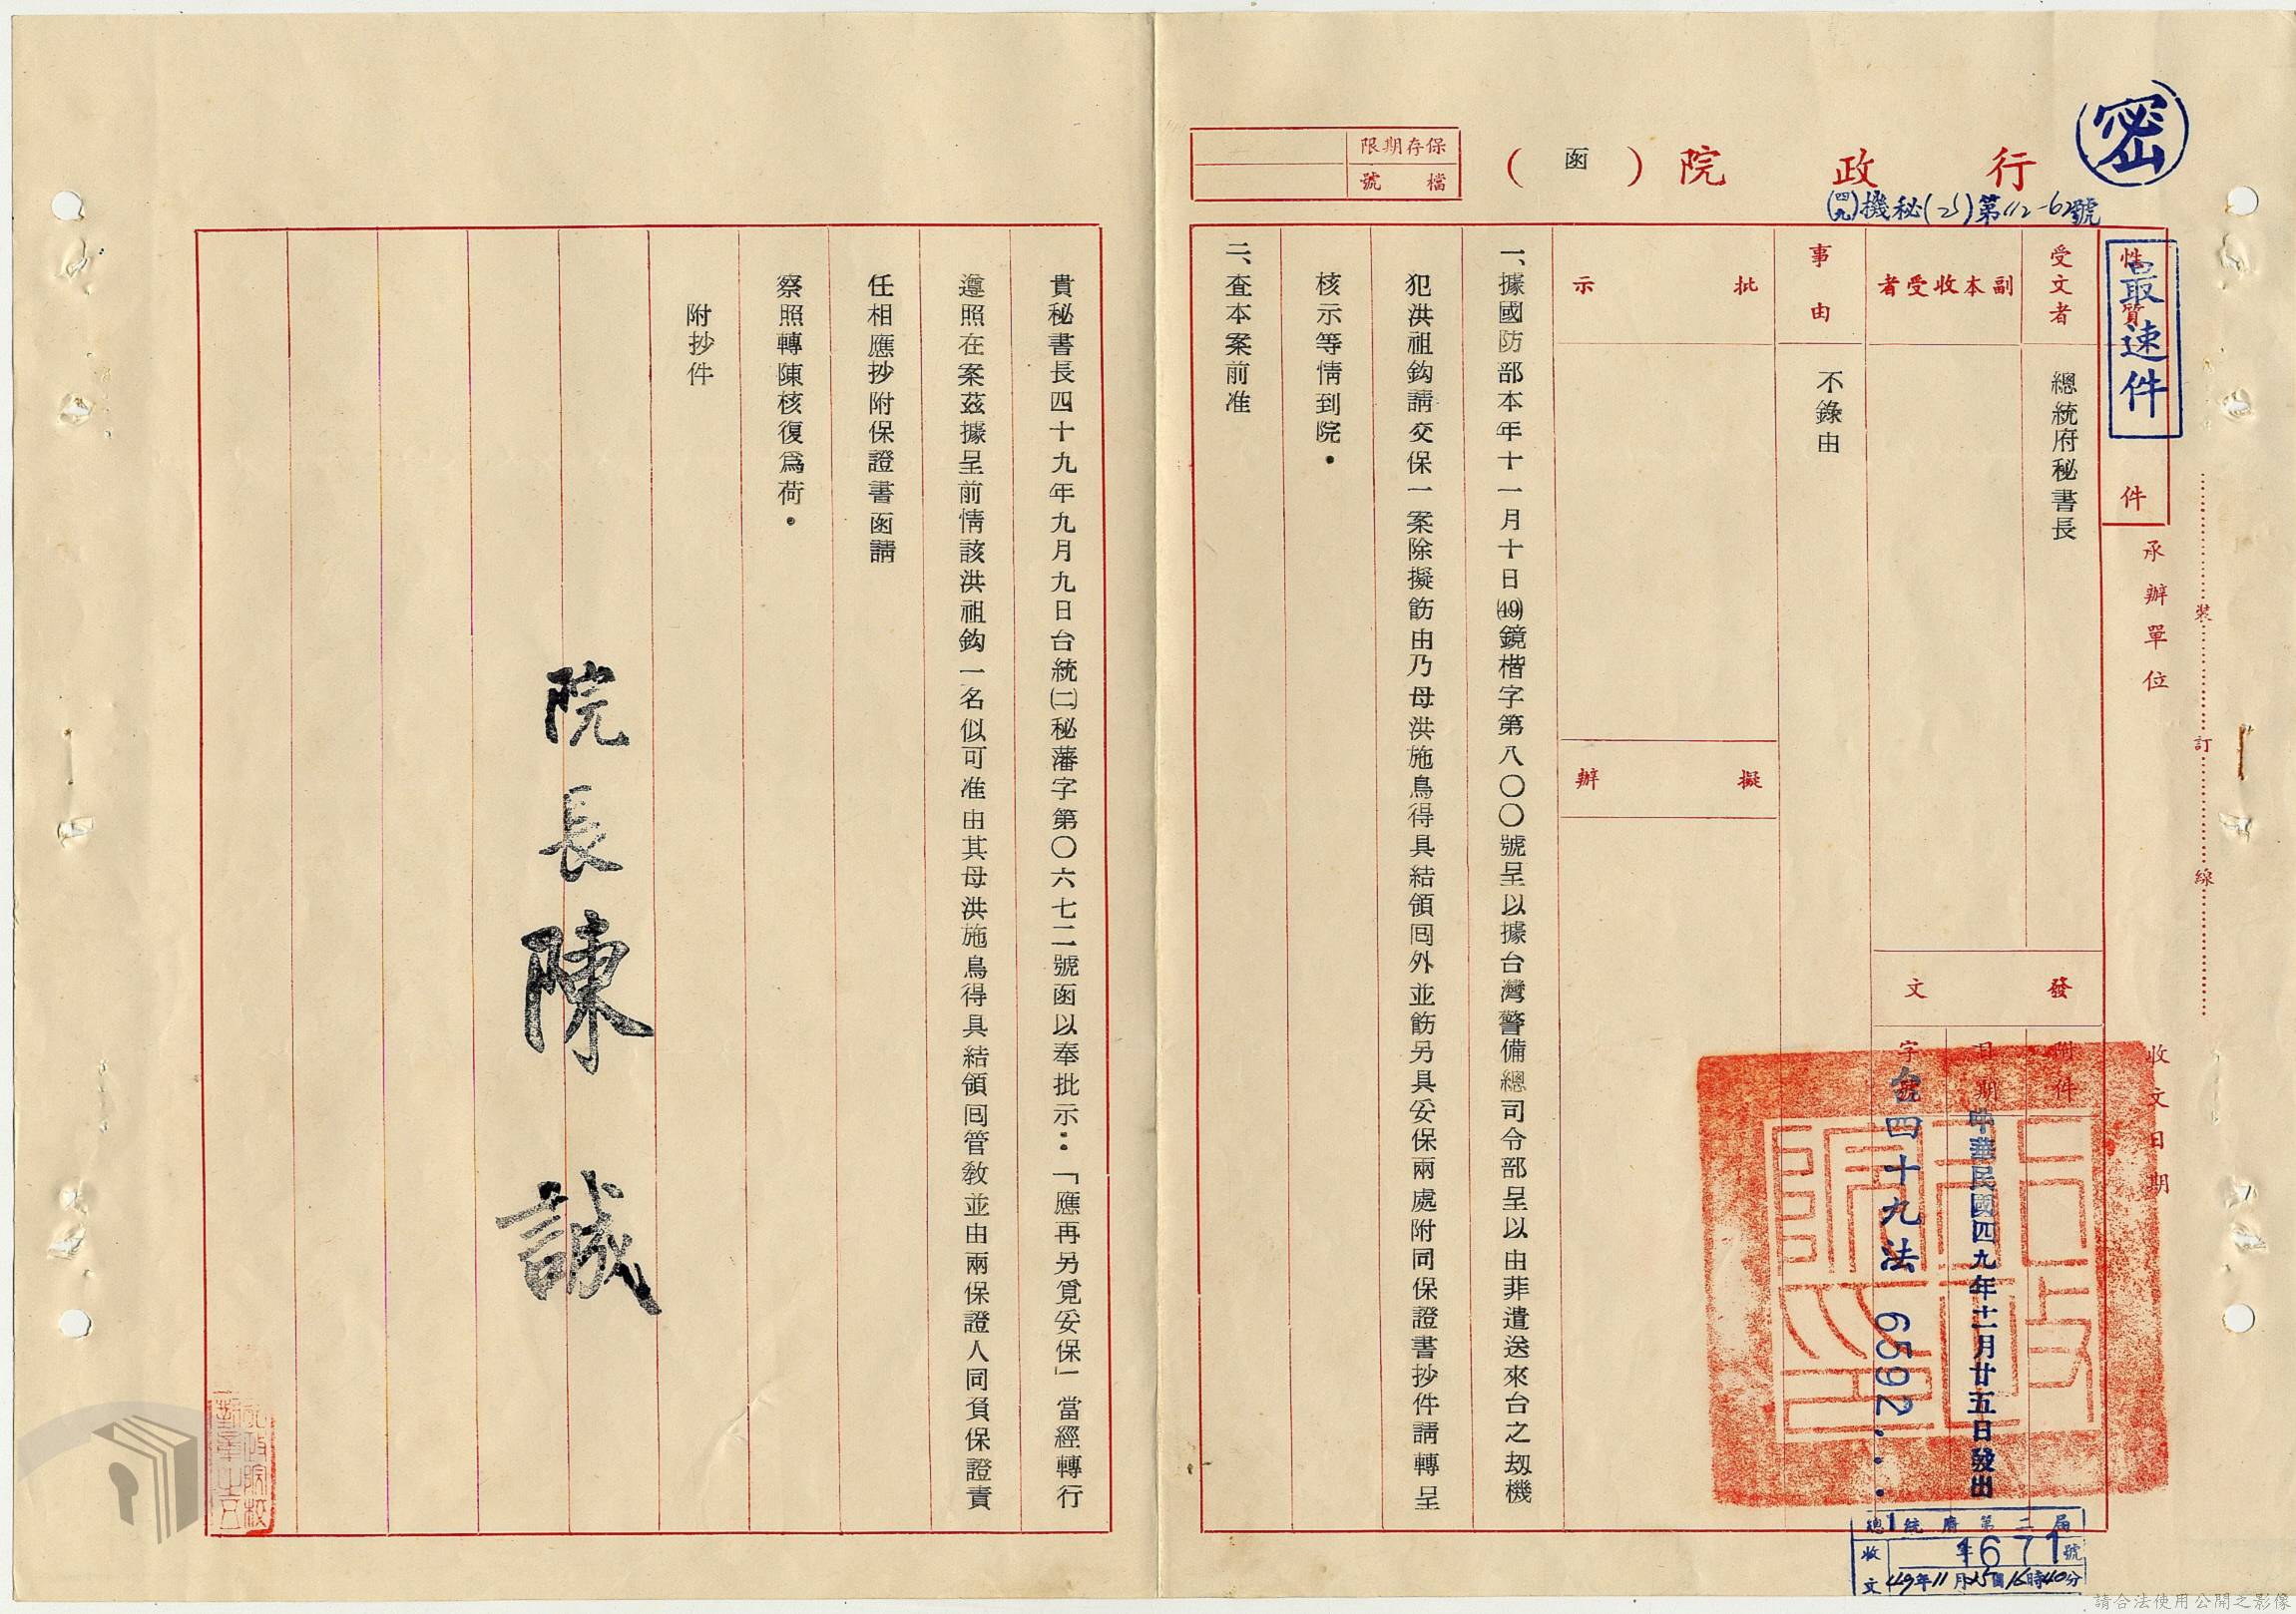 密
行政院（函）
保存期限
檔號
(四九)機秘(乙)第112-62號
最速件
性質
件
承辦單位
收文日期
裝
訂
線
受文者
總統府秘書長
副本收受者
發文
附件
日期
中華民國四九年十一月廿五日發出
字號
台四十九法6592
事由
不錄由
批示
擬辦
一、據國防部本年十一月十日(49)鏡楷字第八〇〇號呈以據台灣警備總司令部呈以由菲遣送來台之刼機
犯洪祖鈎請交保一案除擬飭由乃母洪施鳥得具結領囘外並飭另具妥保兩處附同保證書抄件請轉呈
核示等情到院。
二、查本案前准
貴秘書長四十九年九月九日台統㈡秘藩字第〇六七二號函以奉批示：「應再另覓妥保」當經轉行
遵照在案茲據呈前情該洪祖鈎一名似可准由其母洪施鳥得具結領囘管教並由兩保證人同負保證責
任相應抄附保證書函請
察照轉陳核復爲荷。
附抄件
院長陳誠
總統府第二局
收文
1671號
49年11月25日16時40分
請合法使用公開之影像